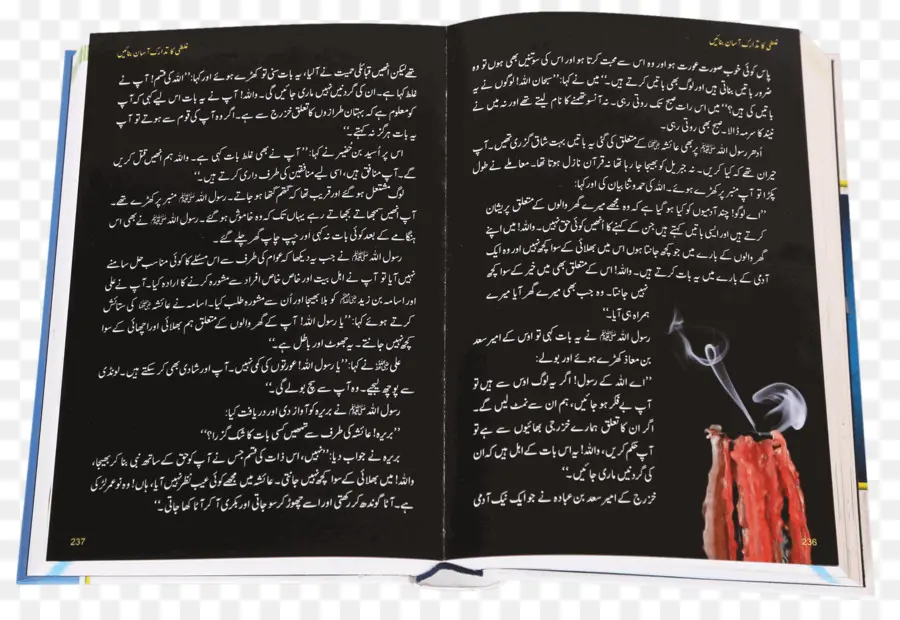 غلطی کا تدارک آسان بنائیں
پاس کوئی خوب صورت عورت ہو اور وہ اس سے محبت کرتا ہو اور اس کی سوتنیں بھی ہوں تو وہ
ضرور باتیں بناتی ہیں اور لوگ بھی باتیں کرتے ہیں۔‘‘ میں نے کہا: ’’سبحان اللہ! لوگوں نے یہ
باتیں کی ہیں؟‘‘ میں اس رات صبح تک روتی رہی۔ نہ آنسو تھمنے کا نام لیتے تھے اور نہ میں نے
نیند کا سرمہ ڈالا۔ صبح بھی روتی رہی۔
اُدھر رسول اللہ ﷺ پر بھی عائشہ رضی اللہ عنہا کے متعلق کی گئی یہ باتیں بہت شاق گزری تھیں۔ آپ
حیران تھے کہ کیا کریں۔ نہ جبریل کو بھیجا جا رہا تھا نہ قرآن نازل ہوتا تھا۔ معاملے نے طول
پکڑا تو آپ منبر پر کھڑے ہوئے۔ اللہ کی حمد و ثنا بیان کی اور کہا:
’’اے لوگو! چند آدمیوں کو کیا ہو گیا ہے کہ وہ مجھے میرے گھر والوں کے متعلق پریشان
کرتے ہیں اور ایسی باتیں کہتے ہیں جن کے کہنے کا اُنھیں کوئی حق نہیں۔ واللہ! میں اپنے
گھر والوں کے بارے میں جو کچھ جانتا ہوں اس میں بھلائی کے سوا کچھ نہیں اور وہ ایک
آدمی کے بارے میں یہ بات کرتے ہیں۔ واللہ! اس کے متعلق بھی میں خیر کے سوا کچھ
نہیں جانتا۔ وہ جب بھی میرے گھر آیا میرے
ہمراہ ہی آیا۔‘‘
رسول اللہ ﷺ نے یہ بات کہی تو اوّس کے امیر سعد
بن معاذ کھڑے ہوئے اور بولے:
’’اے اللہ کے رسول! اگر یہ لوگ اوّس سے ہیں تو
آپ بے فکر ہو جائیں، ہم ان سے نمٹ لیں گے۔
اگر ان کا تعلق ہمارے خزرجی بھائیوں سے ہے تو
آپ حکم کریں، واللہ! یہ اس بات کے اہل ہیں کہ ان
کی گردنیں ماری جائیں۔‘‘
خزرج کے امیر سعد بن عبادہ نے جو ایک نیک آدمی
236
غلطی کا تدارک آسان بنائیں
تھے لیکن انھیں قبائلی حمیت نے آ لیا، یہ بات سنی تو کھڑے ہوئے اور کہا: ’’اللہ کی قسم! آپ نے
غلط کہا ہے۔ ان کی گردنیں نہیں ماری جائیں گی۔ واللہ! آپ نے یہ بات اس لیے کہی کہ آپ
کو معلوم ہے کہ بہتان طرازوں کا تعلق خزرج سے ہے۔ اگر وہ آپ کی قوم سے ہوتے تو آپ
یہ بات ہرگز نہ کہتے۔‘‘
اس پر اُسید بن حُضیر نے کہا: ’’آپ نے بھی غلط بات کہی ہے۔ واللہ ہم انھیں قتل کریں
گے۔ آپ منافق ہیں، اسی لیے منافقین کی طرف داری کرتے ہیں۔‘‘
لوگ مشتعل ہو گئے اور قریب تھا کہ گتھم گتھا ہو جاتے۔ رسول اللہ ﷺ منبر پر کھڑے تھے۔
آپ انھیں سمجھاتے بجھاتے رہے یہاں تک کہ وہ خاموش ہو گئے۔ رسول اللہ ﷺ نے بھی اس
ہنگامے کے بعد کوئی بات نہ کہی اور چپ چاپ گھر چلے گئے۔
رسول اللہ ﷺ نے جب یہ دیکھا کہ عوام کی طرف سے اس مسئلے کا کوئی مناسب حل سامنے
نہیں آیا تو آپ نے اہل بیت اور خاص خاص افراد سے مشورہ کرنے کا ارادہ کیا۔ آپ نے علی
اور اسامہ بن زید رضی اللہ عنہم کو بلا بھیجا اور اُن سے مشورہ طلب کیا۔ اسامہ نے عائشہ رضی اللہ عنہا کی ستائش
کرتے ہوئے کہا: ’’یا رسول اللہ! آپ کے گھر والوں کے متعلق ہم بھلائی اور اچھائی کے سوا
کچھ نہیں جانتے۔ یہ جھوٹ اور باطل ہے۔‘‘
علی رضی اللہ عنہ نے کہا: ’’یا رسول اللہ! عورتوں کی کمی نہیں۔ آپ اور شادی بھی کر سکتے ہیں۔ لونڈی
سے پوچھ لیجیے۔ وہ آپ سے سچ بولے گی۔‘‘
رسول اللہ ﷺ نے بریرہ کو آواز دی اور دریافت کیا:
’’بریرہ! عائشہ کی طرف سے تمھیں کسی بات کا شک گزرا؟‘‘
بریرہ نے جواب دیا: ’’نہیں، اس ذات کی قسم جس نے آپ کو حق کے ساتھ نبی بنا کر بھیجا،
واللہ! میں بھلائی کے سوا کچھ نہیں جانتی۔ عائشہ میں مجھے کوئی عیب نظر نہیں آیا، ہاں! وہ نو عمر لڑکی
ہے۔ آٹا گوندھ کر رکھتی اور اسے چھوڑ کر سو جاتی اور بکری آ کر آٹا کھا جاتی۔‘‘
237